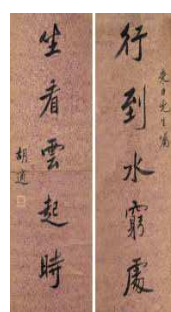 行到水窮處
先生屬
坐看雲起時
胡適